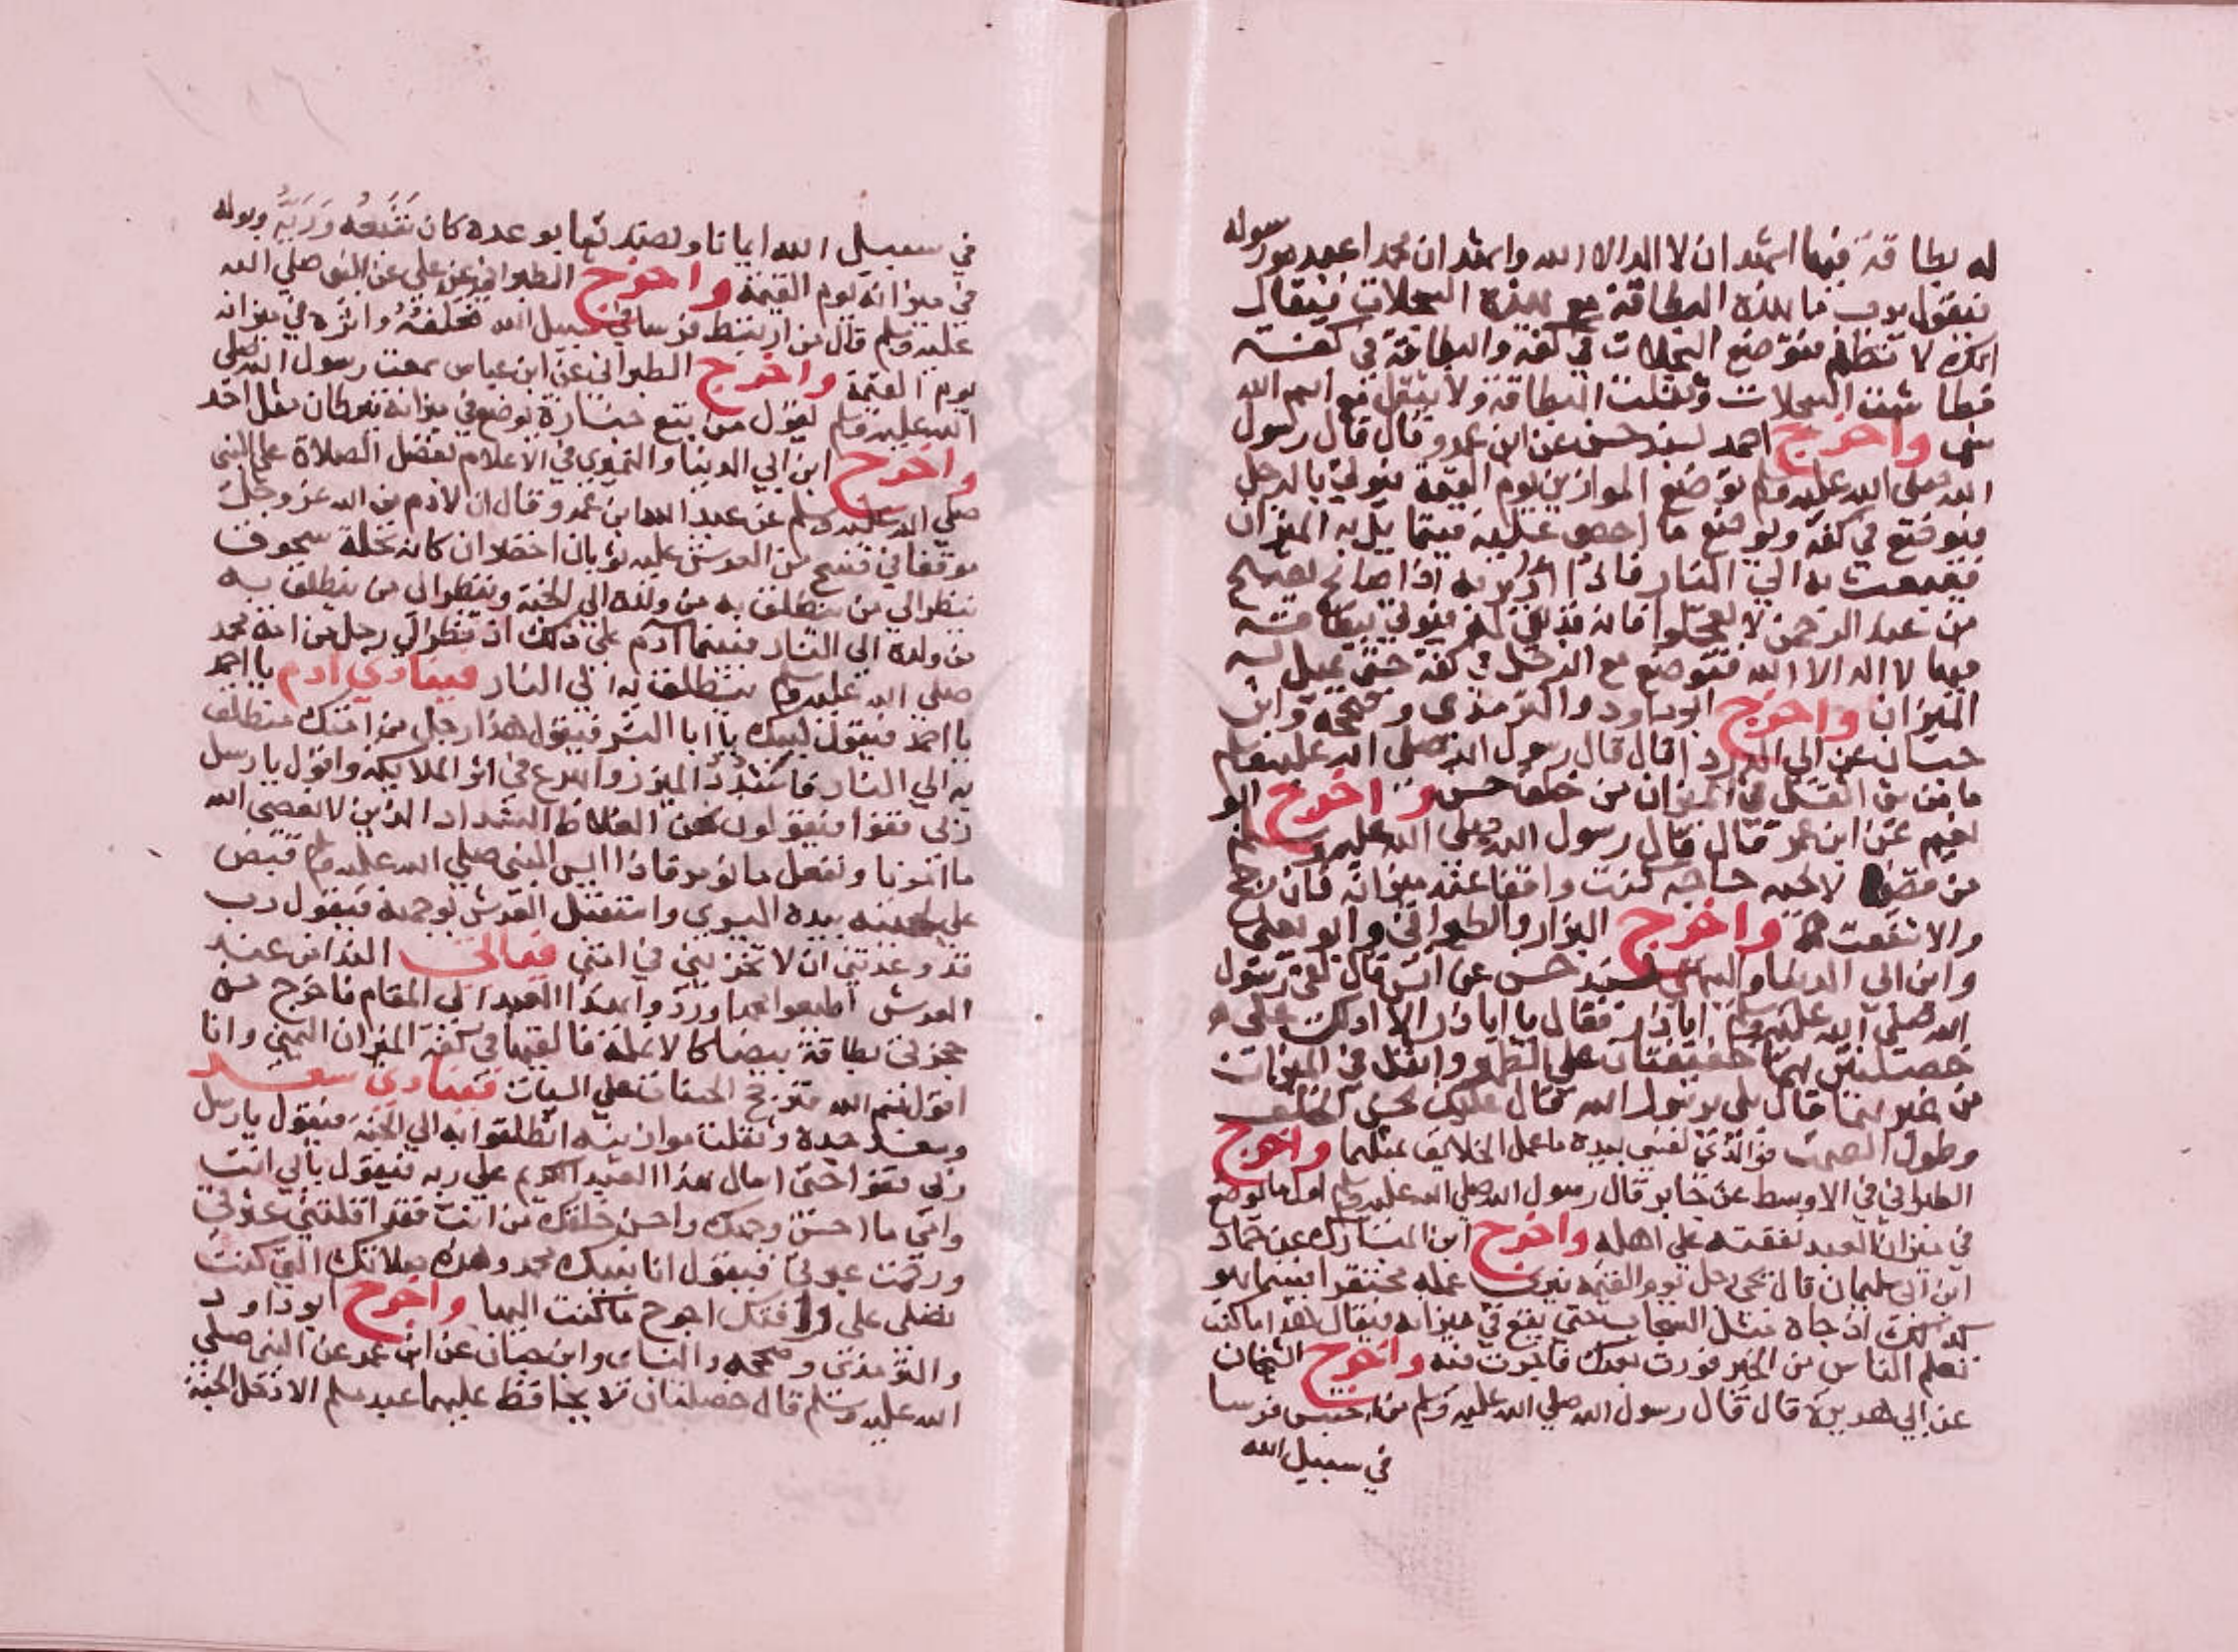 له بطاقة فيها اشهد ان لا اله الا الله واشهد ان محمدا عبده ورسوله
فيقول يرب ما هذه البطاقة مع هذه السجلات فيقال
انك لا تظلم فتوضع السجلات في كفة والبطاقة في كفته
فطاشت السجلات وثقلت البطاقة ولا يثقل مع اسم الله
شى واخرج احمد بسند حسن عن ابن عمرو قال قال رسول
الله صلى الله عليه وسلم توضع الموازين يوم القيمة فيوتي بالرجل
فيوضع في كفة ويوضع ما احصى عليه فيتمايل به الميزان
فيبعث به الي النار فاذا ادبر به اذا صائح يصيح
من عند الرحمن لا تعجلوا فانه قد بقي له فيوتي ببطاقة
فيها لا اله الا الله فتوضع مع الرجل في كفة حتى يميل به
الميزان واخرج ابو داود والترمذي وصححه وابن
حبان عن ابي الدردا قال قال رسول الله صلى الله عليه وسلم
ما من شى اثقل في الميزان من خلق حسن واخرج ابو
نعيم عن ابن عمر قال قال رسول الله صلى الله عليه وسلم
من قضى لاخيه حاجة كنت واقفا عند ميزانه فان رجح
والا شفعت له واخرج البزار والطبراني وابو يعلى
وابن ابي الدنيا والبيهقي بسند حسن عن انس قال لقى رسول
الله صلى الله عليه وسلم ابا ذر فقال يا ابا ذر الا ادلك على
خصلتين هما خفيفتان على الظهر واثقل في الميزان
من غيرهما قال بلى يرسول الله قال عليك بحسن الخلق
وطول الصمت فوالذي نفسي بيده ما عمل الخلايق بمثلهما واخرج
الطبراني في الاوسط عن جابر قال رسول الله صلي الله عليه وسلم اول ما يوضع
في ميزان العبد نفقته على اهله واخرج ابن المبارك عن حماد
ابن ابي سليمان قال يجى رجل يوم القيمة فيرى عمله محتقرا فبينما هو
كذلك اذ جاه مثل السحاب حتى يقع في ميزانه فيقال هذا ما كنت
تعلم الناس من الخير فورث بعدك فاجرت فيه واخرج الشيخان
عن ابي هريرة قال قال رسول الله صلي الله عليه وسلم من احتبس فرسا
في سبيل الله
في سبيل الله ايمانا وتصديقا بوعده كان شبعه وريه وبوله
في ميزانه يوم القيمة واخرج الطبراني عن علي عن النبي صلي الله
عليه وسلم قال من ارتبط فرسا في سبيل الله فعلفه واثره في ميزانه
يوم القيمة واخرج الطبراني عن ابن عباس سمعت رسول الله صلى
الله عليه وسلم يقول من تبع جنازة توضع في ميزانه قيراطان مثل احد
واخرج ابن ابي الدنيا والنميري في الاعلام بفضل الصلاة على النبي
صلي الله عليه وسلم عن عبد الله ابن عمرو قال ان لادم من الله عز وجل
موقفا في فسح من العرش عليه ثوبان اخضران كانه نخلة سحوق
ينظر الي من ينطلق به من ولده الي الجنة وينظر الى من ينطلق به
من ولده الى النار فبينما آدم على ذلك اذ نظر الي رجل من امة محمد
صلى الله عليه وسلم ينطلق به الي النار فينادي ادم يا احمد
يا احمد فيقول لبيك يا ابا البشر فيقول هذا رجل من امتك منطلق
به الي النار فاشدد المئزر واسرع في اثر الملايكة واقول يا رسل
ربى قفوا فيقولون نحن الغلاظ الشداد الذين لا نعصى الله
ما امرنا ونفعل ما نومر فاذا ايس النبي صلي الله عليه وسلم قبض
على لحيته بيده اليسرى واستقبل العرش بوجهه فيقول رب
قد وعدتني ان لا تخزيني في امتي فياتي الندا من عند
العرش اطيعوا محمدا وردوا هذا العبد الى المقام فاخرج من
حجزتى بطاقة بيضا كالانملة فالقيها في كفة الميزان اليمني وانا
اقول بسم الله فترجح الحسنات على السيات فينادي سعد
وسعد جده وثقلت موازينه انطلقوا به الي الجنة فيقول يا رسل
ربى قفوا حتى اسال هذا العبد الكريم على ربه فيقول بابي انت
وامي ما احسن وجهك واحسن خلقك من انت فقد اقلتني عثرتي
ورحمت عبرتي فيقول انا نبيك محمد وهذه صلاتك التي كنت
تصلى على وافتك احوج ما كنت اليها واخرج ابو داود
والترمذي وصححه والنساى وابن حبان عن ابن عمرو عن النبي صلى
الله عليه وسلم قال خصلتان لا يحافظ عليهما عبد مسلم الا دخل الجنة